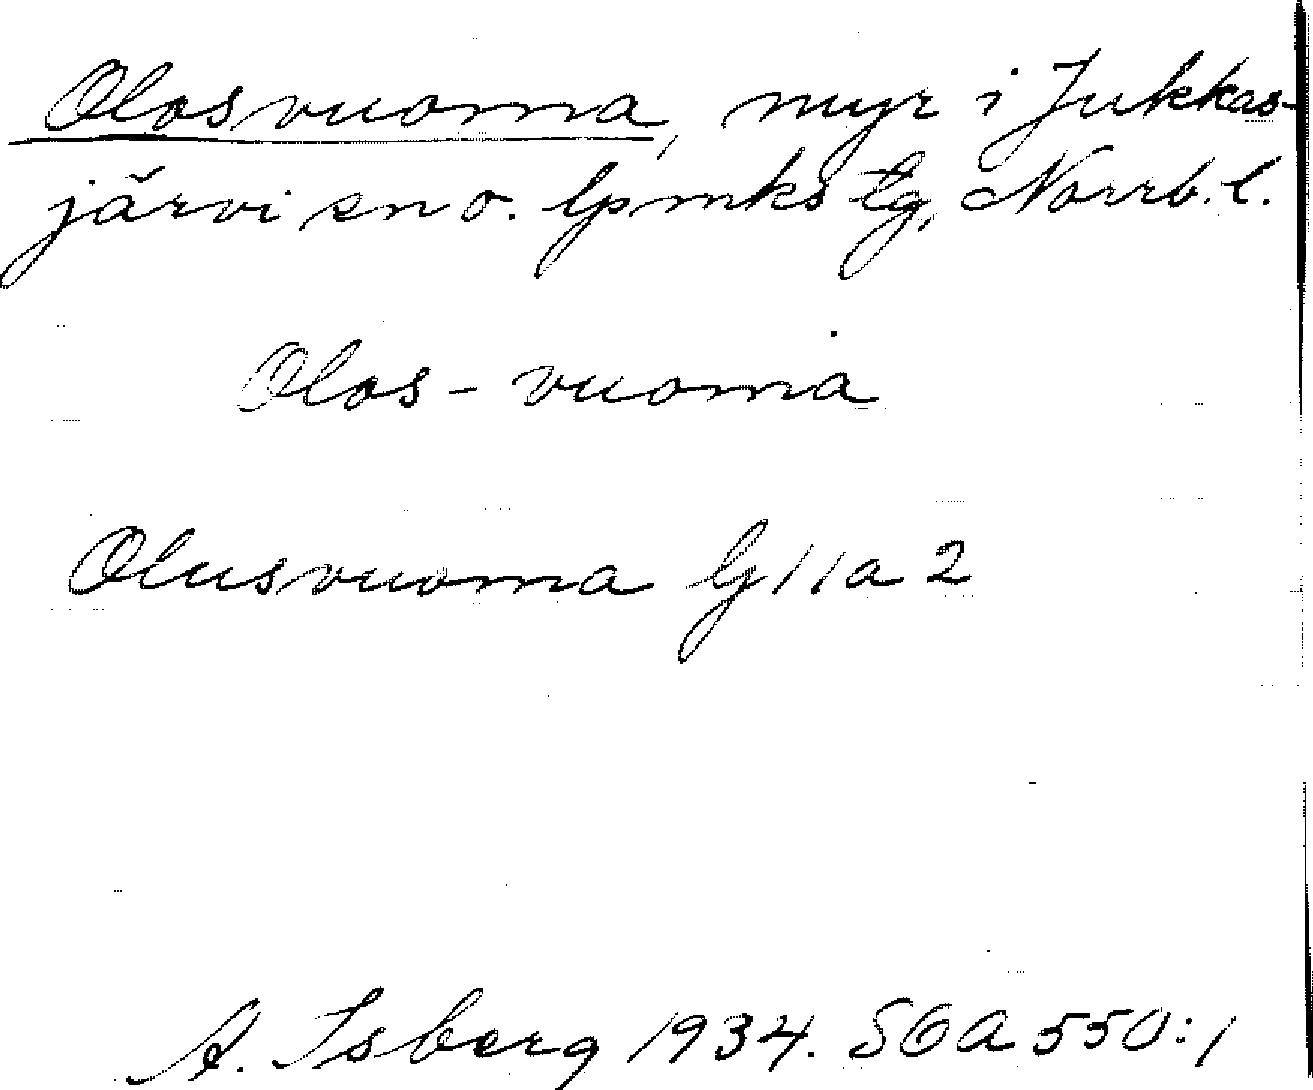 Olosvuoma, myr i Jukkas-
järvi sn o. lpmks tg, Norrb. l.
Olos-vuoma
Olusvuoma G11a2
A. Isberg 1934. SOA 550:1